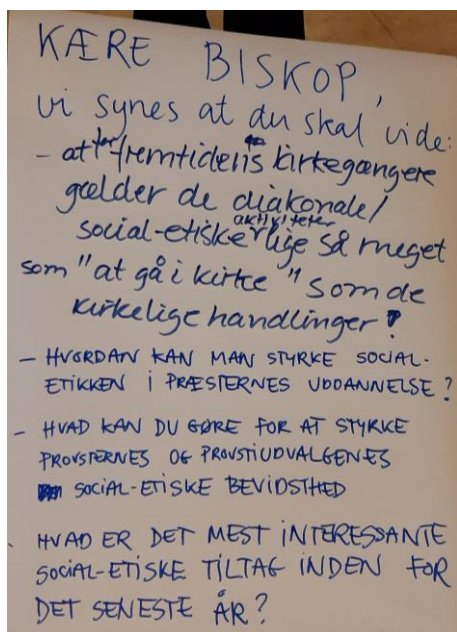 KÆRE BISKOP,
vi synes at du skal vide:
- at for fremtidens kirkegængere
gælder de diakonale/
social-etiske aktiviteter lige så meget
som "at gå i kirke" som de
kirkelige handlinger!
- HVORDAN KAN MAN STYRKE SOCIAL-
ETIKKEN I PRÆSTERNES UDDANNELSE?
- HVAD KAN DU GØRE FOR AT STYRKE
PROVSTERNES OG PROVSTIUDVALGENES
SOCIAL-ETISKE BEVIDSTHED
HVAD ER DET MEST INTERESSANTE
SOCIAL-ETISKE TILTAG INDEN FOR
DET SENESTE ÅR?